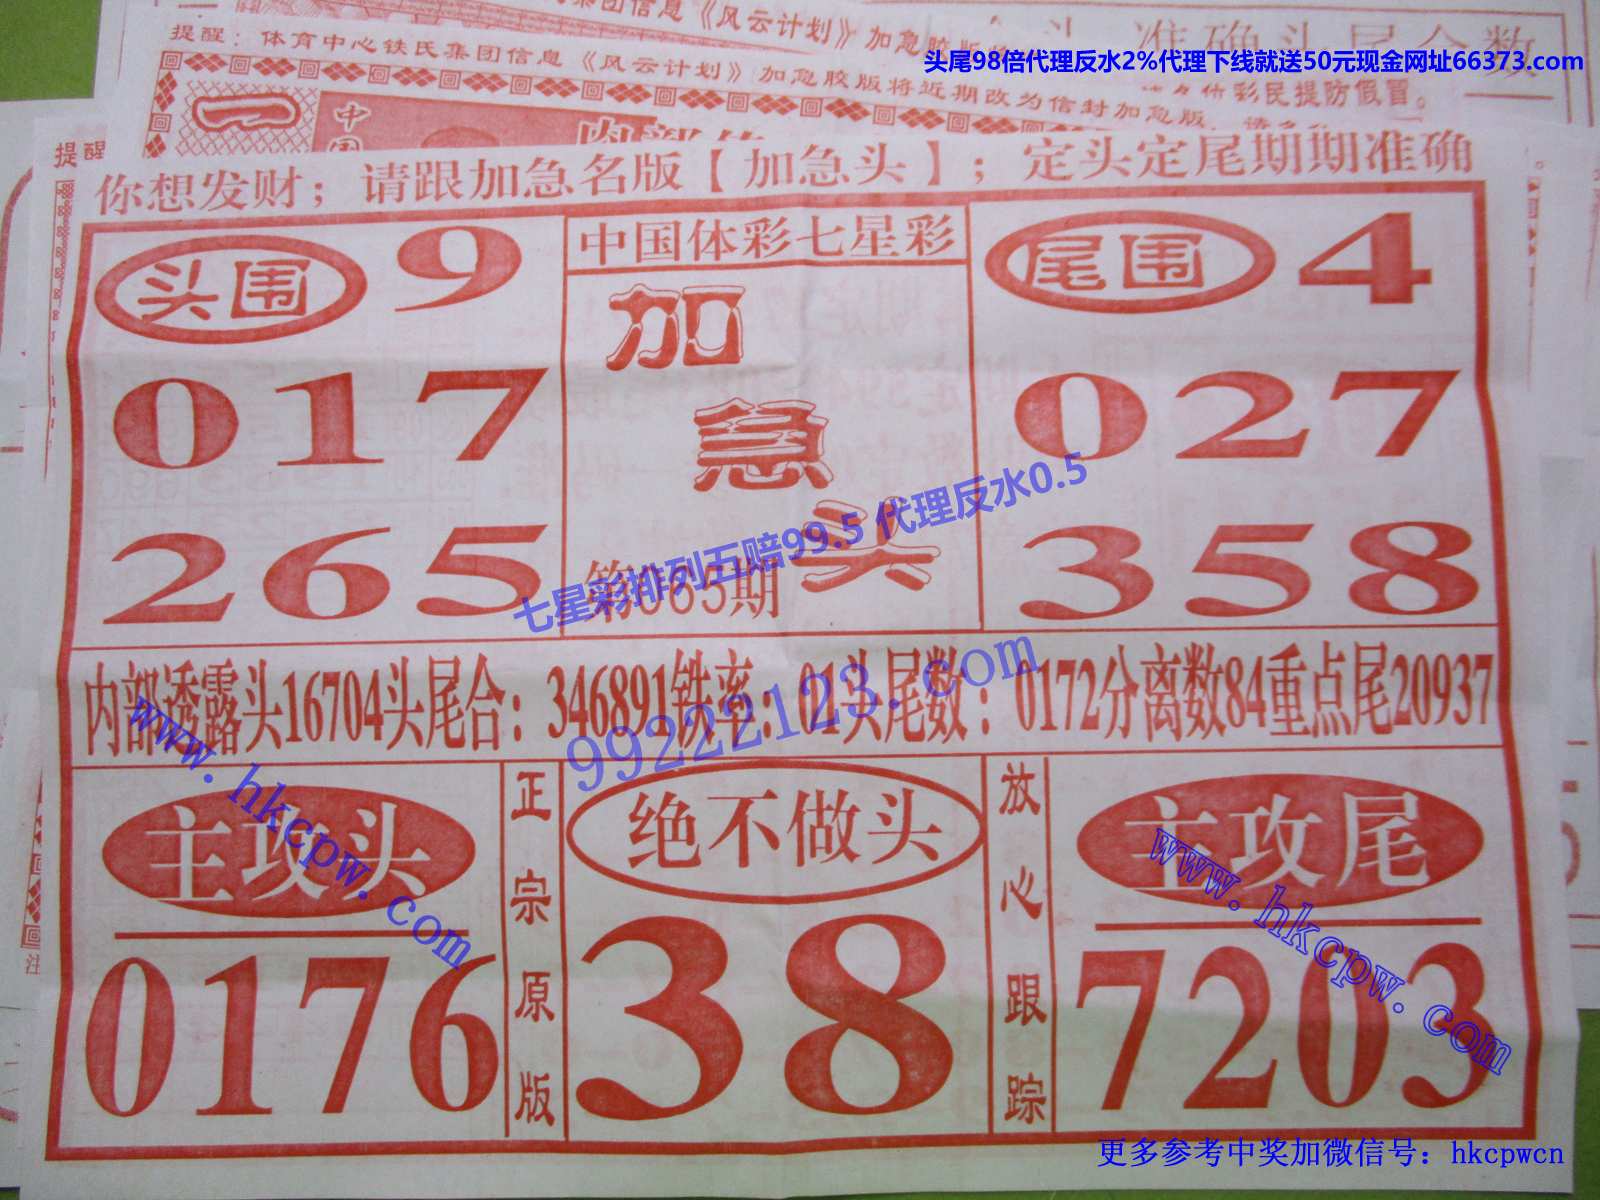 集团信息《风云计划》加急胶版
准确头尾合数
头尾98倍代理反水2%代理下线就送50元现金网址66373.com
提醒：体育中心铁氏集团信息《风云计划》加急胶版将近期改为信封加急版，请各
彩民提防假冒。
提醒
你想发财；请跟加急名版【加急头】；定头定尾期期准确
头围 9
017
265
中国体彩七星彩
加
急
头
第065期
尾围 4
027
358
七星彩排列五赔99.5 代理反水0.5
内部透露头16704头尾合：346891铁率：01头尾数：0172分离数84重点尾20937
99222123.com
www.hkcpw.com
主攻头
0176
正宗原版
绝不做头
38
放心跟踪
主攻尾
7203
www.hkcpw.com
注
更多参考中奖加微信号：hkcpwcn